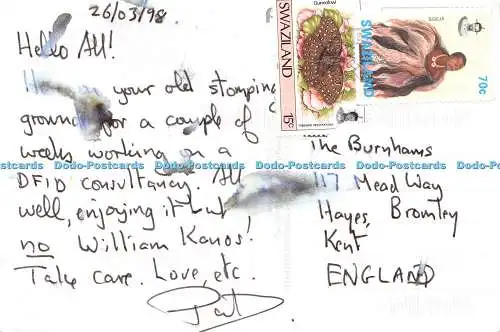 26/03/98
Hello All!
your old stomping
ground for a couple of
weeks working on a
DFID consultancy. All
well, enjoying it but,
no William Kanos!
Take care. Love, etc.
Pat
SWAZILAND
15c
SWAZILAND
70c
The Burnhams
117 Mead Way
Hayes, Bromley
Kent
ENGLAND
Dodo-Postcards Dodo-Postcards Dodo-Postcards Dodo-Postcards Dodo-Postcards